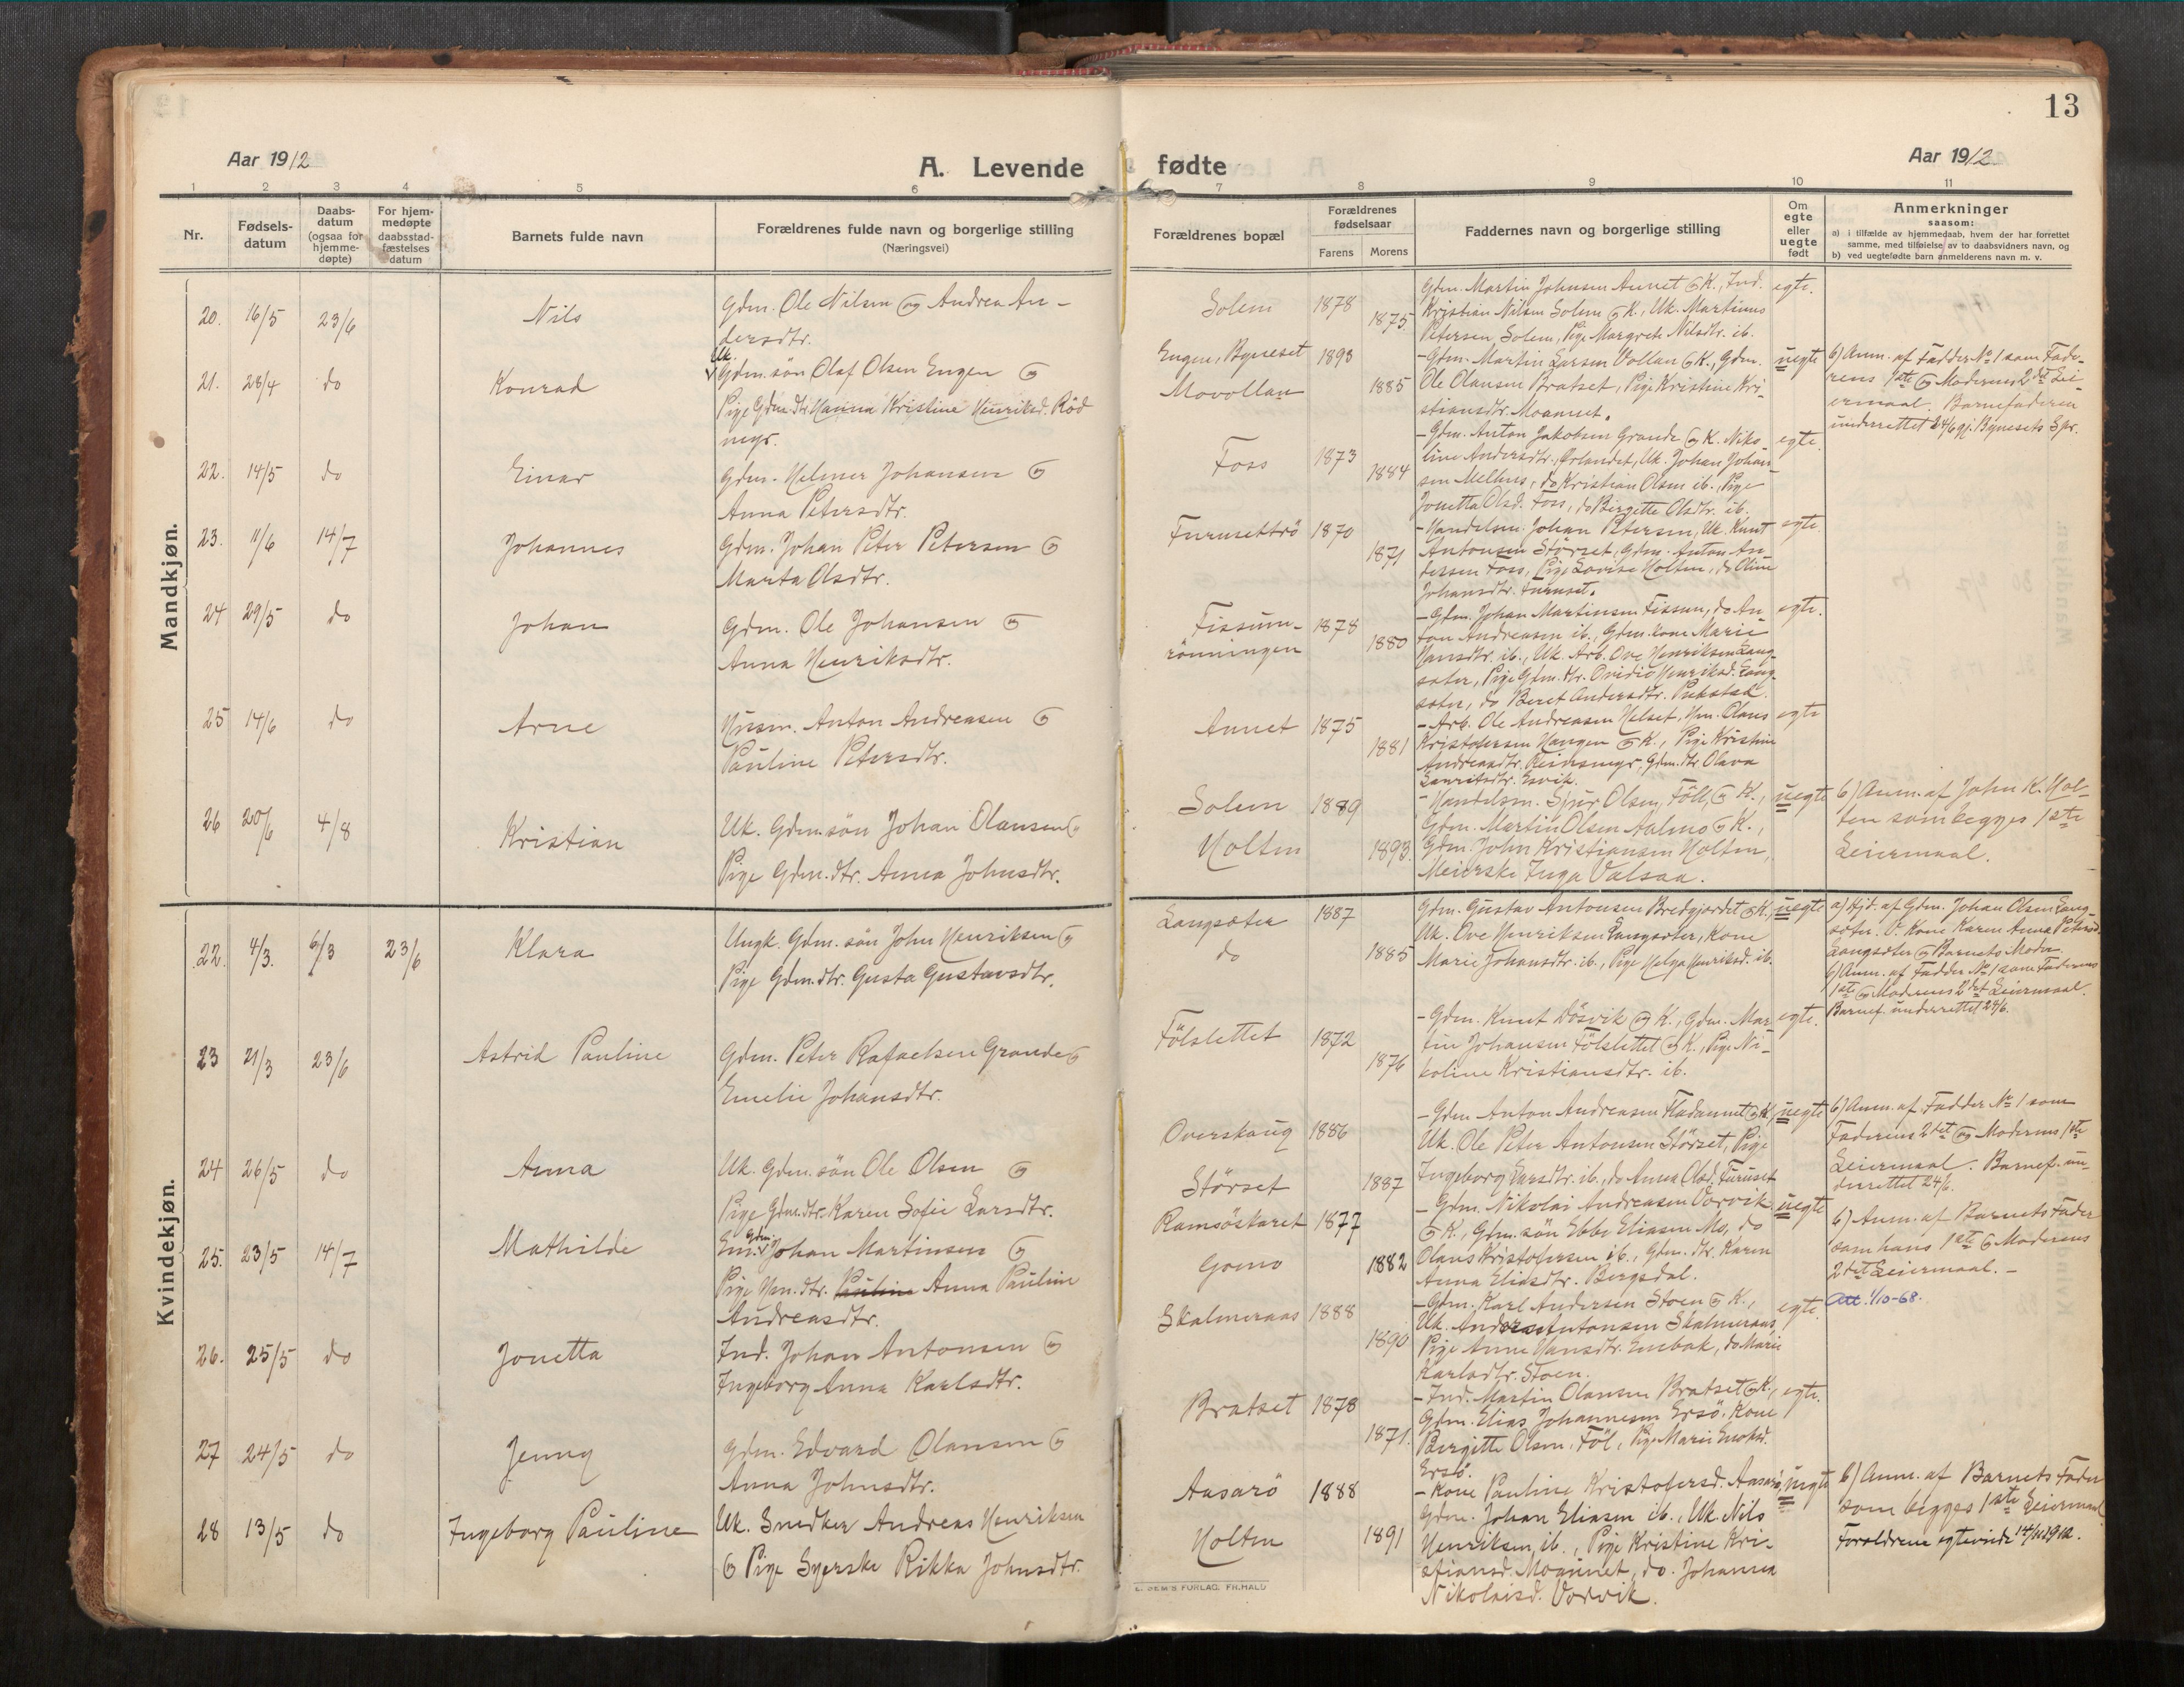 13
Aar 1912
A. Levende fødte
Aar 1912
1 2 3 4 5 6 7 8 9 10 11
Nr.
Fødsels-
datum
Daabs-
datum
(ogsaa for
hjemme-
døpte)
For hjem-
medøpte
daabsstad-
fæstelses
datum
Barnets fulde navn
Forældrenes fulde navn og borgerlige stilling
(Næringsvei)
Forældrenes bopæl
Forældrenes
fødselsaar
Farens Morens
Faddernes navn og borgerlige stilling
Om
egte
eller
uegte
født
Anmerkninger
saasom:
a) i tilfælde av hjemmedaab, hvem der har forrettet
samme, med tilføielse av to daabsvidners navn, og
b) ved uegtefødte barn anmelderens navn m. v.
Mandkjøn.
20. 16/5 23/6 Nils
Gdm. Ole Nilsen og Andrea An-
dersdtr.
Solem 1878 1875
Gdm. Martin Johnsen Aunet og K., Ind.
Kristian Nilsen Solem og K., Uk. Martinus
Petersen Solem, Pige Margrete Nilsdtr. ib.
egte.
21. 28/4 do Konrad
Uk.
Gdm. søn Olaf Olsen Engen og
Pige Gdm. dtr. Hanna Kristine Henriksd. Röd
myr.
Engen, Byneset 1893
Movollan 1885
- Gdm. Martin Larsen Vollan og K., Gdm.
Ole Olausen Bratset, Pige Kristine Kri-
stiansdtr. Moannet.
uegte
b) Anm. af Fadder No 1 som Fade-
rens 1ste og Moderens 2det Lei-
ermaal. Barnefaderen
underrettet 24/6 gj. Bynesets Spr.
22. 14/5 do Einar
Gdm. Helmer Johansen og
Anna Petersdtr.
Foss 1873 1884
- Gdm. Anton Jakobsen Grande og K. Niko
line Andersdtr., Ørlandet, Uk. Johan Johan-
sen Melhus, do Kristian Olsen ib., Pige
Jonetta Olsd. Foss, do Birgitte Olsdtr. ib.
egte
23. 11/6 14/7 Johannes
Gdm. Johan Peter Petersen og
Marta Olsdtr.
Furusettrö 1870 1871
- Handelsm. Johan Petersen, Uk. Knut
Antonsen Störset, Gdm. Anton An-
dersen Foss, Pige Lovise Holten, do Oline
Johansdtr. Furuset.
egte
24 29/5 do Johan
Gdm. Ole Johansen og
Anna Henriksdtr.
Fissum-
rönningen 1878 1880
- Gdm. Johan Martinsen Fissum, do An-
ton Andreasen ib., Gdm. kone Marie
Hansdtr. ib., Uk. Arb. Ove Henriksen Lang-
sæter, Pige Gdm. dtr. Ovidie Henriksd. Lang-
sæter, do Beret Andersdtr. Pukstad.
egte.
25 14/6 do Arne
Husm. Anton Andreasen og
Pauline Petersdtr.
Aunet 1875 1881
- Arb. Ole Andreasen Helset, Hm. Olaus
Kristofersen Haugen og K., Pige Kristine
Andreasdtr. Reinsmyr, Gdm. dtr. Olava
Lauritsdtr. Esvik.
egte
26 20/6 4/8 Kristian
Uk. Gdm. søn Johan Olausen og
Pige Gdm. dtr. Anna Johnsdtr.
Solem 1889
Holten 1893.
- Handelsm. Sjur Olsen, Föll, og K.,
Gdm. Martin Olsen Aalmo og K.,
Gdm. John Kristiansen Holten,
Meierske Inga Valsaa.
uegte
b) Anm. af John K. Hol-
ten som begges 1ste
Leiermaal.
Kvindekjøn.
22. 4/3. 6/3 23/6 Klara
Ungk. Gdm. søn John Henriksen og
Pige Gdm. dtr. Gusta Gustavsdtr.
Langsæter 1887
do 1885
Gdm. Gustav Antonsen Bredgjordet og K.,
Uk. Ove Henriksen Langsæter, Kone
Marie Johansdtr. ib., Pige Helga Henriksd. ib.
uegte
a) Hjd. af Gdm. Johan Olsen Lang-
sæter. V. Kone Karen Anna Petersd.
Langsæter og Barnets Moder.
b) Anm. af Fadder No 1 som Faderens
1ste og Moderens 2det Leiermaal.
Barnef. underrettet 24/6.
23 21/3 23/6 Astrid Pauline
Gdm. Peter Rafaelsen Grande og
Emelie Johansdtr.
Fölslettet 1872 1876
- Gdm. Knut Dösvik og K., Gdm. Mar-
tin Johansen Fölslettet og K., Pige Ni-
koline Kristiansdtr. ib.
egte.
24 26/5 do Anna
Uk. Gdm. søn Ole Olsen og
Pige Gdm. dtr. Karen Sofie Larsdtr.
Overskaug 1886
Störset 1887
- Gdm Anton Andreasen Fladaunet og K.
Uk. Ole Peter Antonsen Störset, Pige
Ingeborg Larsdtr. ib., do Anna Olsd. Furuset
uegte
b) Anm. af Fadder No 1 som
Faderens 2det og Moderens 1ste
Leiermaal. Barnef. un-
derrettet 24/6.
25. 23/5 14/7 Mathilde
Em. Gdm. Johan Martinsen og
Pige Hm. dtr. Pauline Anna Pauline
Andreasdtr.
Ramsöskaret 1877
Gomo 1882
- Gdm. Nikolai Andreasen Vorvik
og K., Gdm. søn Ebbe Eliasen Mo, do
Olaus Kristofersen ib., Gdm. dtr. Karen
Anna Eliasdtr. Bergsdal.
uegte
b) Anm. af Barnets Fader
som hans 1ste og Moderens
2det Leiermaal. -
Att. 1/10-68.
26. 25/5 do Jonetta
Ind. Johan Antonsen og
Ingeborg Anna Karlsdtr.
Skalmeraas 1888 1890
- Gdm. Karl Andersen Stoen og K.,
Uk. Anders Antonsen Skalmeraas,
Pige Anne Hansdtr. Embak, do Marie
Karlsdtr. Stoen.
egte.
27 24/5 do Jenny
Gdm. Edvard Olausen og
Anna Johnsdtr.
Bratset 1878 1871.
- Ind. Martin Olausen Bratset og K.,
Gdm. Elias Johannesen Ersö, Kone
Birgitte Olsen, Föl, Pige Marie Enoksd.
Ersö.
egte.
28 13/5 do Ingeborg Pauline
Uk. Snedker Andreas Henriksen
og Pige Syerske Rikka Johnsdtr.
Aasarö 1888
Holten 1891
- Kone Pauline Kristofersd. Aasarö,
Gdm. Johan Eliasen ib., Uk. Nils
Henriksen, ib., Pige Kristine Kri-
stiansd. Moaunet, do. Johanna
Nikolaisd. Vorvik.
uegte
b) Anm. af Barnets Fader
som begges 1ste Leiermaal
Forældrene egteviede 14/11 1912.
FORLAG, FR.HALD